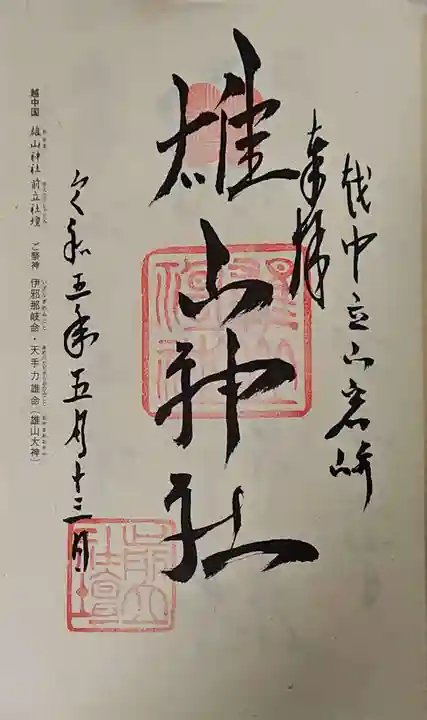 越中立山岩峅
奉拝
雄山神社
雄山神社
前立社壇
令和五年五月十三日
越中国 雄山神社 前立社壇 ご祭神 伊邪那岐命・天手力雄命（雄山大神）